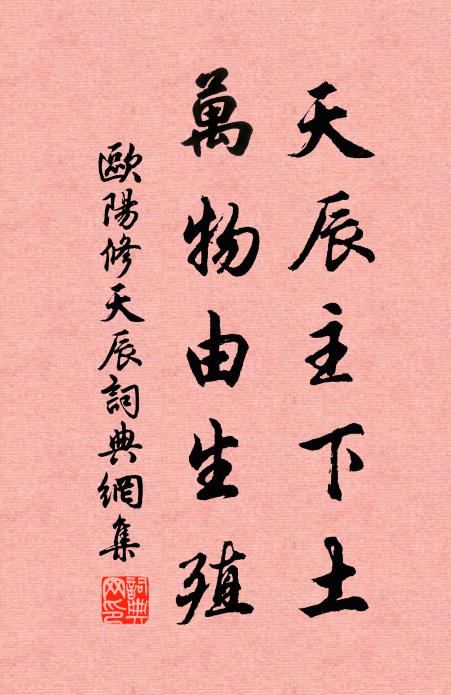 天辰主下土
萬物由生殖
歐陽修天辰詞典網集
詞典網印